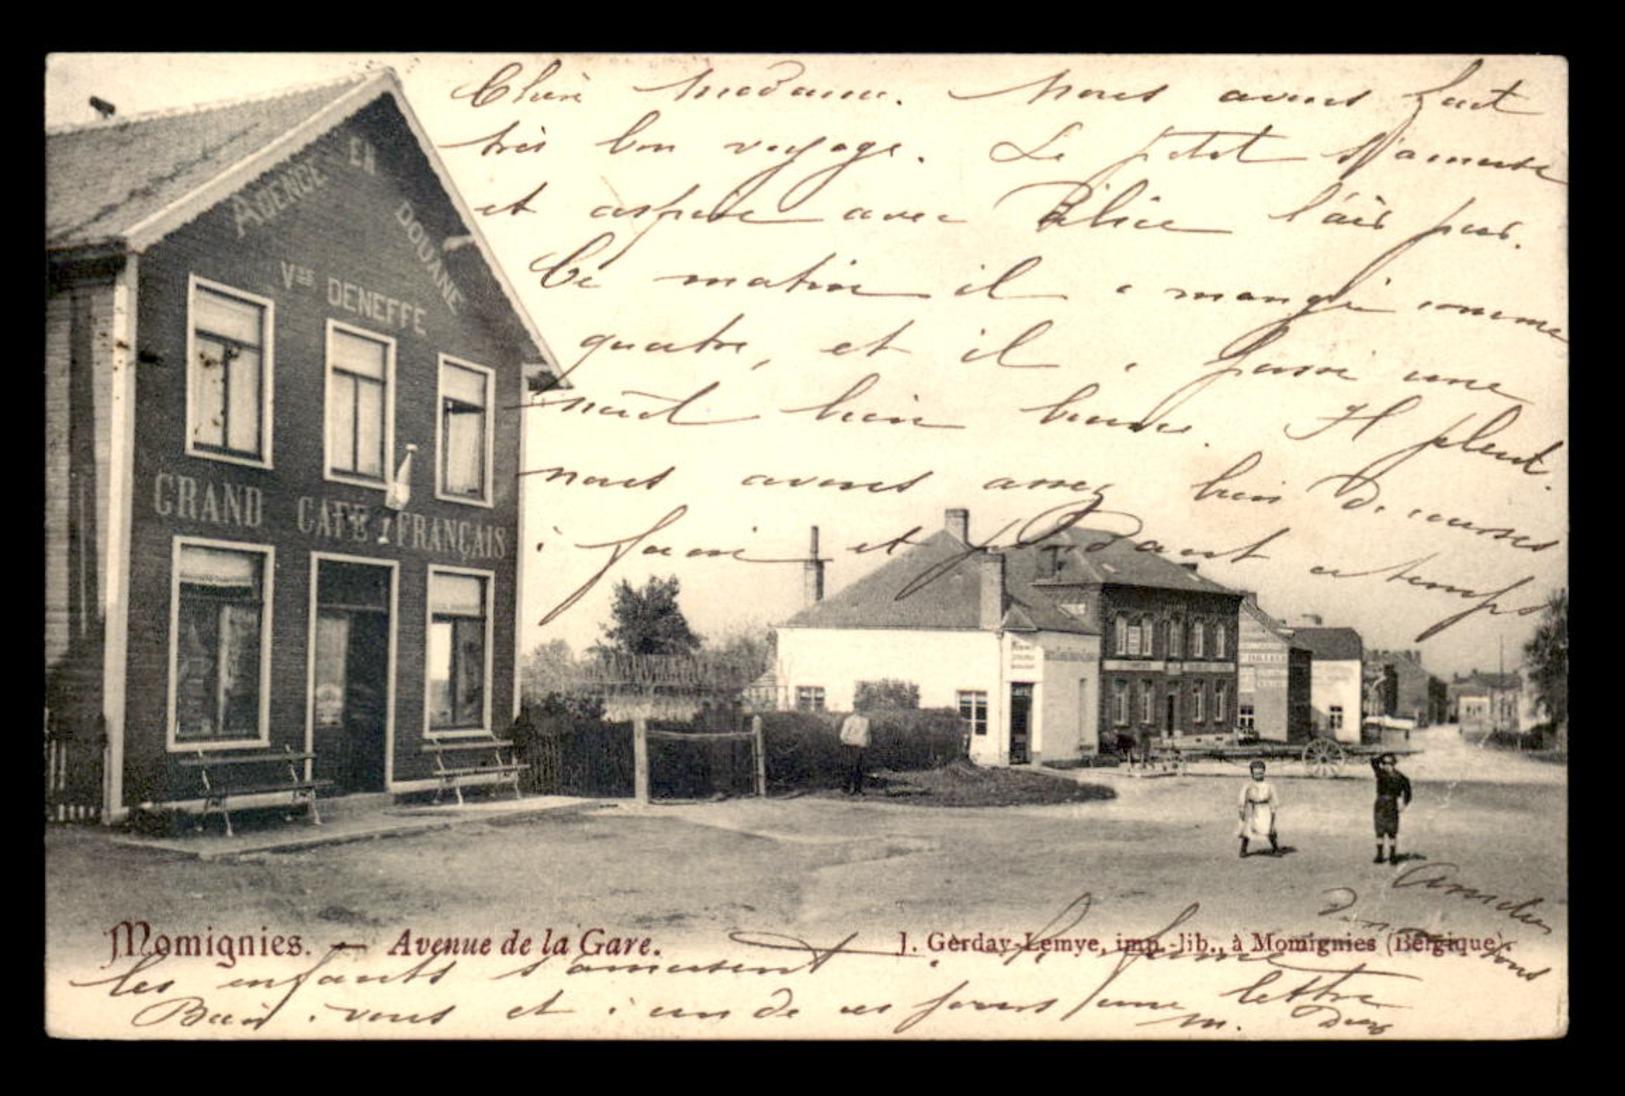 Chère Madame. Nous avons fait
très bon voyage. Le petit s'amuse
et aspire avec délice l'air pur.
Ce matin il a mangé comme
quatre, et il a passé une
nuit bien bonne. Il pleut.
nous avons assez bien de courses
à faire et pendant ce temps
les enfants s'amusent.
Bien à vous et à un de ces jours une lettre
AGENCE EN DOUANE
Vve DENEFFE
GRAND CAFÉ FRANÇAIS
Momignies. — Avenue de la Gare.
J. Gerday-Lemye, imp.-lib., à Momignies (Belgique).